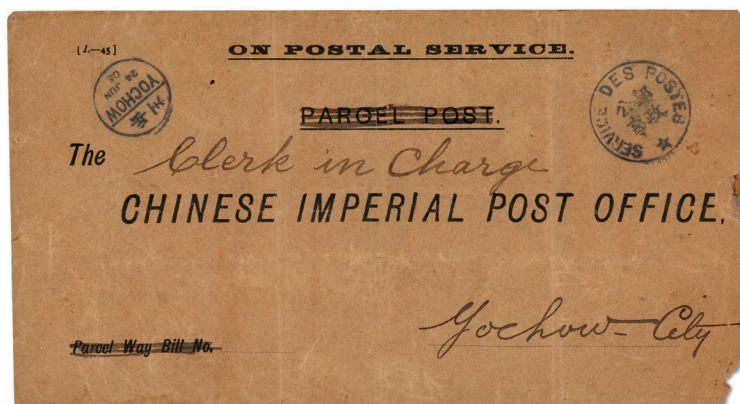 [L.—45]
ON POSTAL SERVICE.
YOCHOW
24 JUN
SERVICE DES POSTES
PARCEL POST.
The Clerk in Charge
CHINESE IMPERIAL POST OFFICE,
Yochow - City
Parcel Way Bill No.